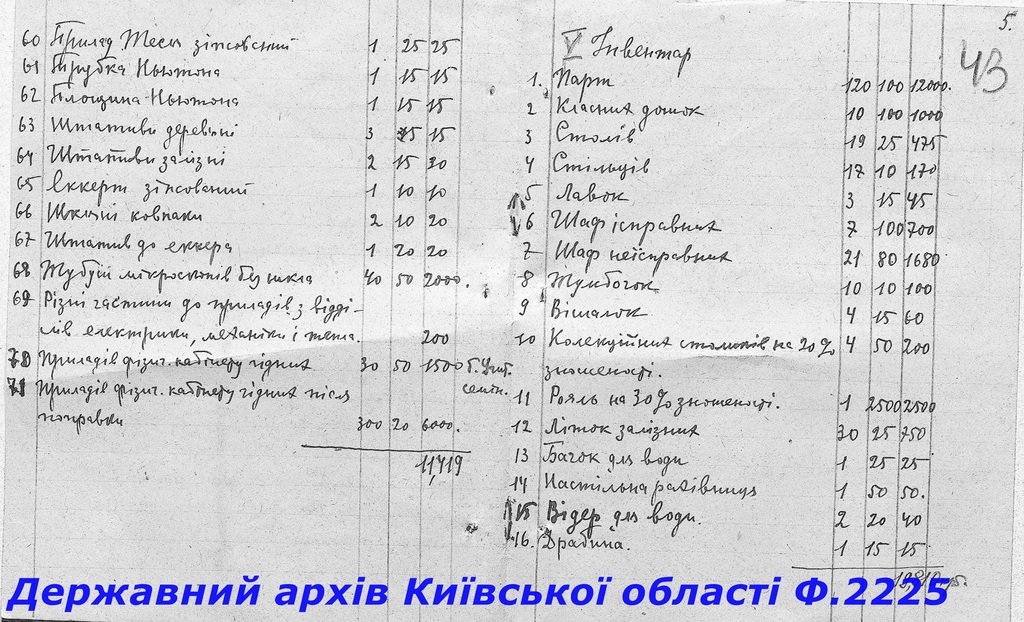 60 Прилад Тесл зіпсований 1 25 25
61 Трубка Ньютона 1 15 15
62 Площина Ньютона 1 15 15
63 Штативи деревяні 3 15 15
64 Штативи залізні 2 15 30
65 Еккерт зіпсований 1 10 10
66 Шкляні ковпаки 2 10 20
67 Штатив до еккера 1 20 20
68 Тубуси мікроскопів без шкла 40 50 2000.
69 Різні частини до приладів з відді-
лів електрики, механіки і тепла. 200
70 Приладів фізич. кабінету гідних 30 50 1500
71 Приладів фізич. кабінету гідних після
поправки 300 20 6000.
11,419
5.
43
V Інвентар
1. Парт 120 100 12000.
2 Класних дошок 10 100 1000
3 Столів 19 25 475
4 Стільців 17 10 170
5 Лавок 3 15 45
6 Шаф ісправних 7 100 700
7 Шаф неісправних 21 80 1680
8 Тумбочок 10 10 100
9 Вішалок 4 15 60
10 Колекційних столиків на 20% 4 50 200
зношеності.
11 Рояль на 30% зношеності. 1 2500 2500
12 Літок залізних 30 25 750
13 Бачок для води 1 25 25
14 Настільна рахівниця 1 50 50.
15 Відер для води. 2 20 40
16. Драбина. 1 15 15
Державний архів Київської області Ф.2225